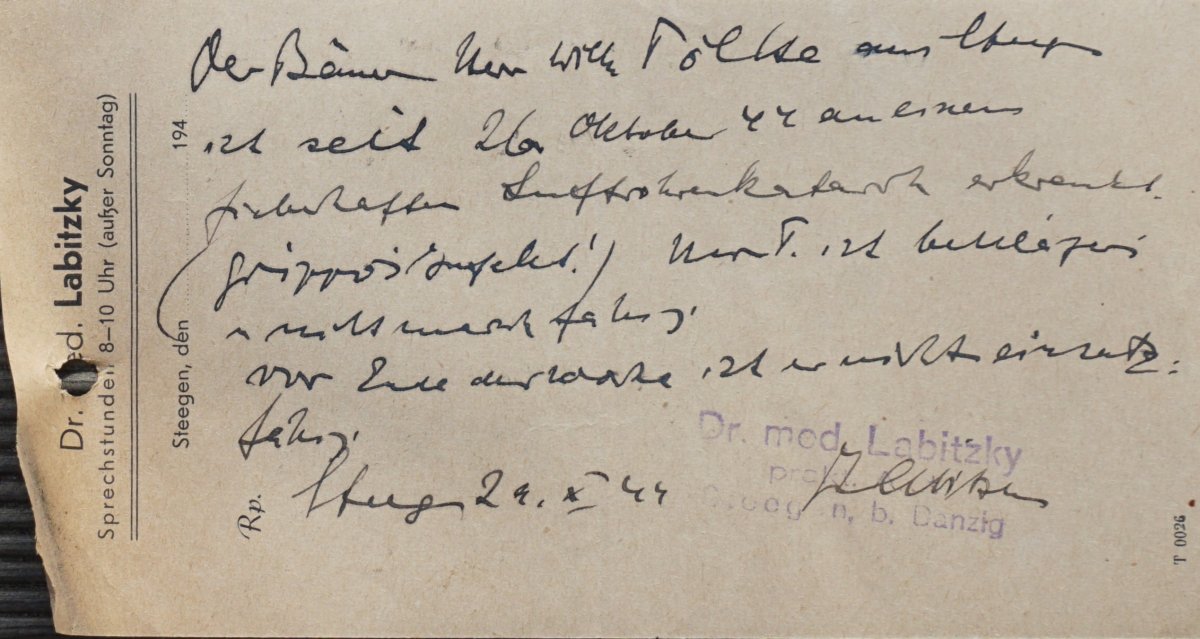 Der Bauer Herr Wilh. Töltke aus Steegen
ist seit 26. Oktober 44 an einem
fieberhaften Luftröhrenkatarrh erkrankt.
(grippös. Infekt!) Herr T. ist bettlägerig
u. nicht marschfähig.
Vor Ende der Woche ist er nicht einsatz-
fähig.
Steegen 29. X 44
Dr. med. Labitzky
Steegen, b. Danzig
Dr. med. Labitzky
Sprechstunden 8–10 Uhr (außer Sonntag)
Steegen, den 194
Rp.
T 0026